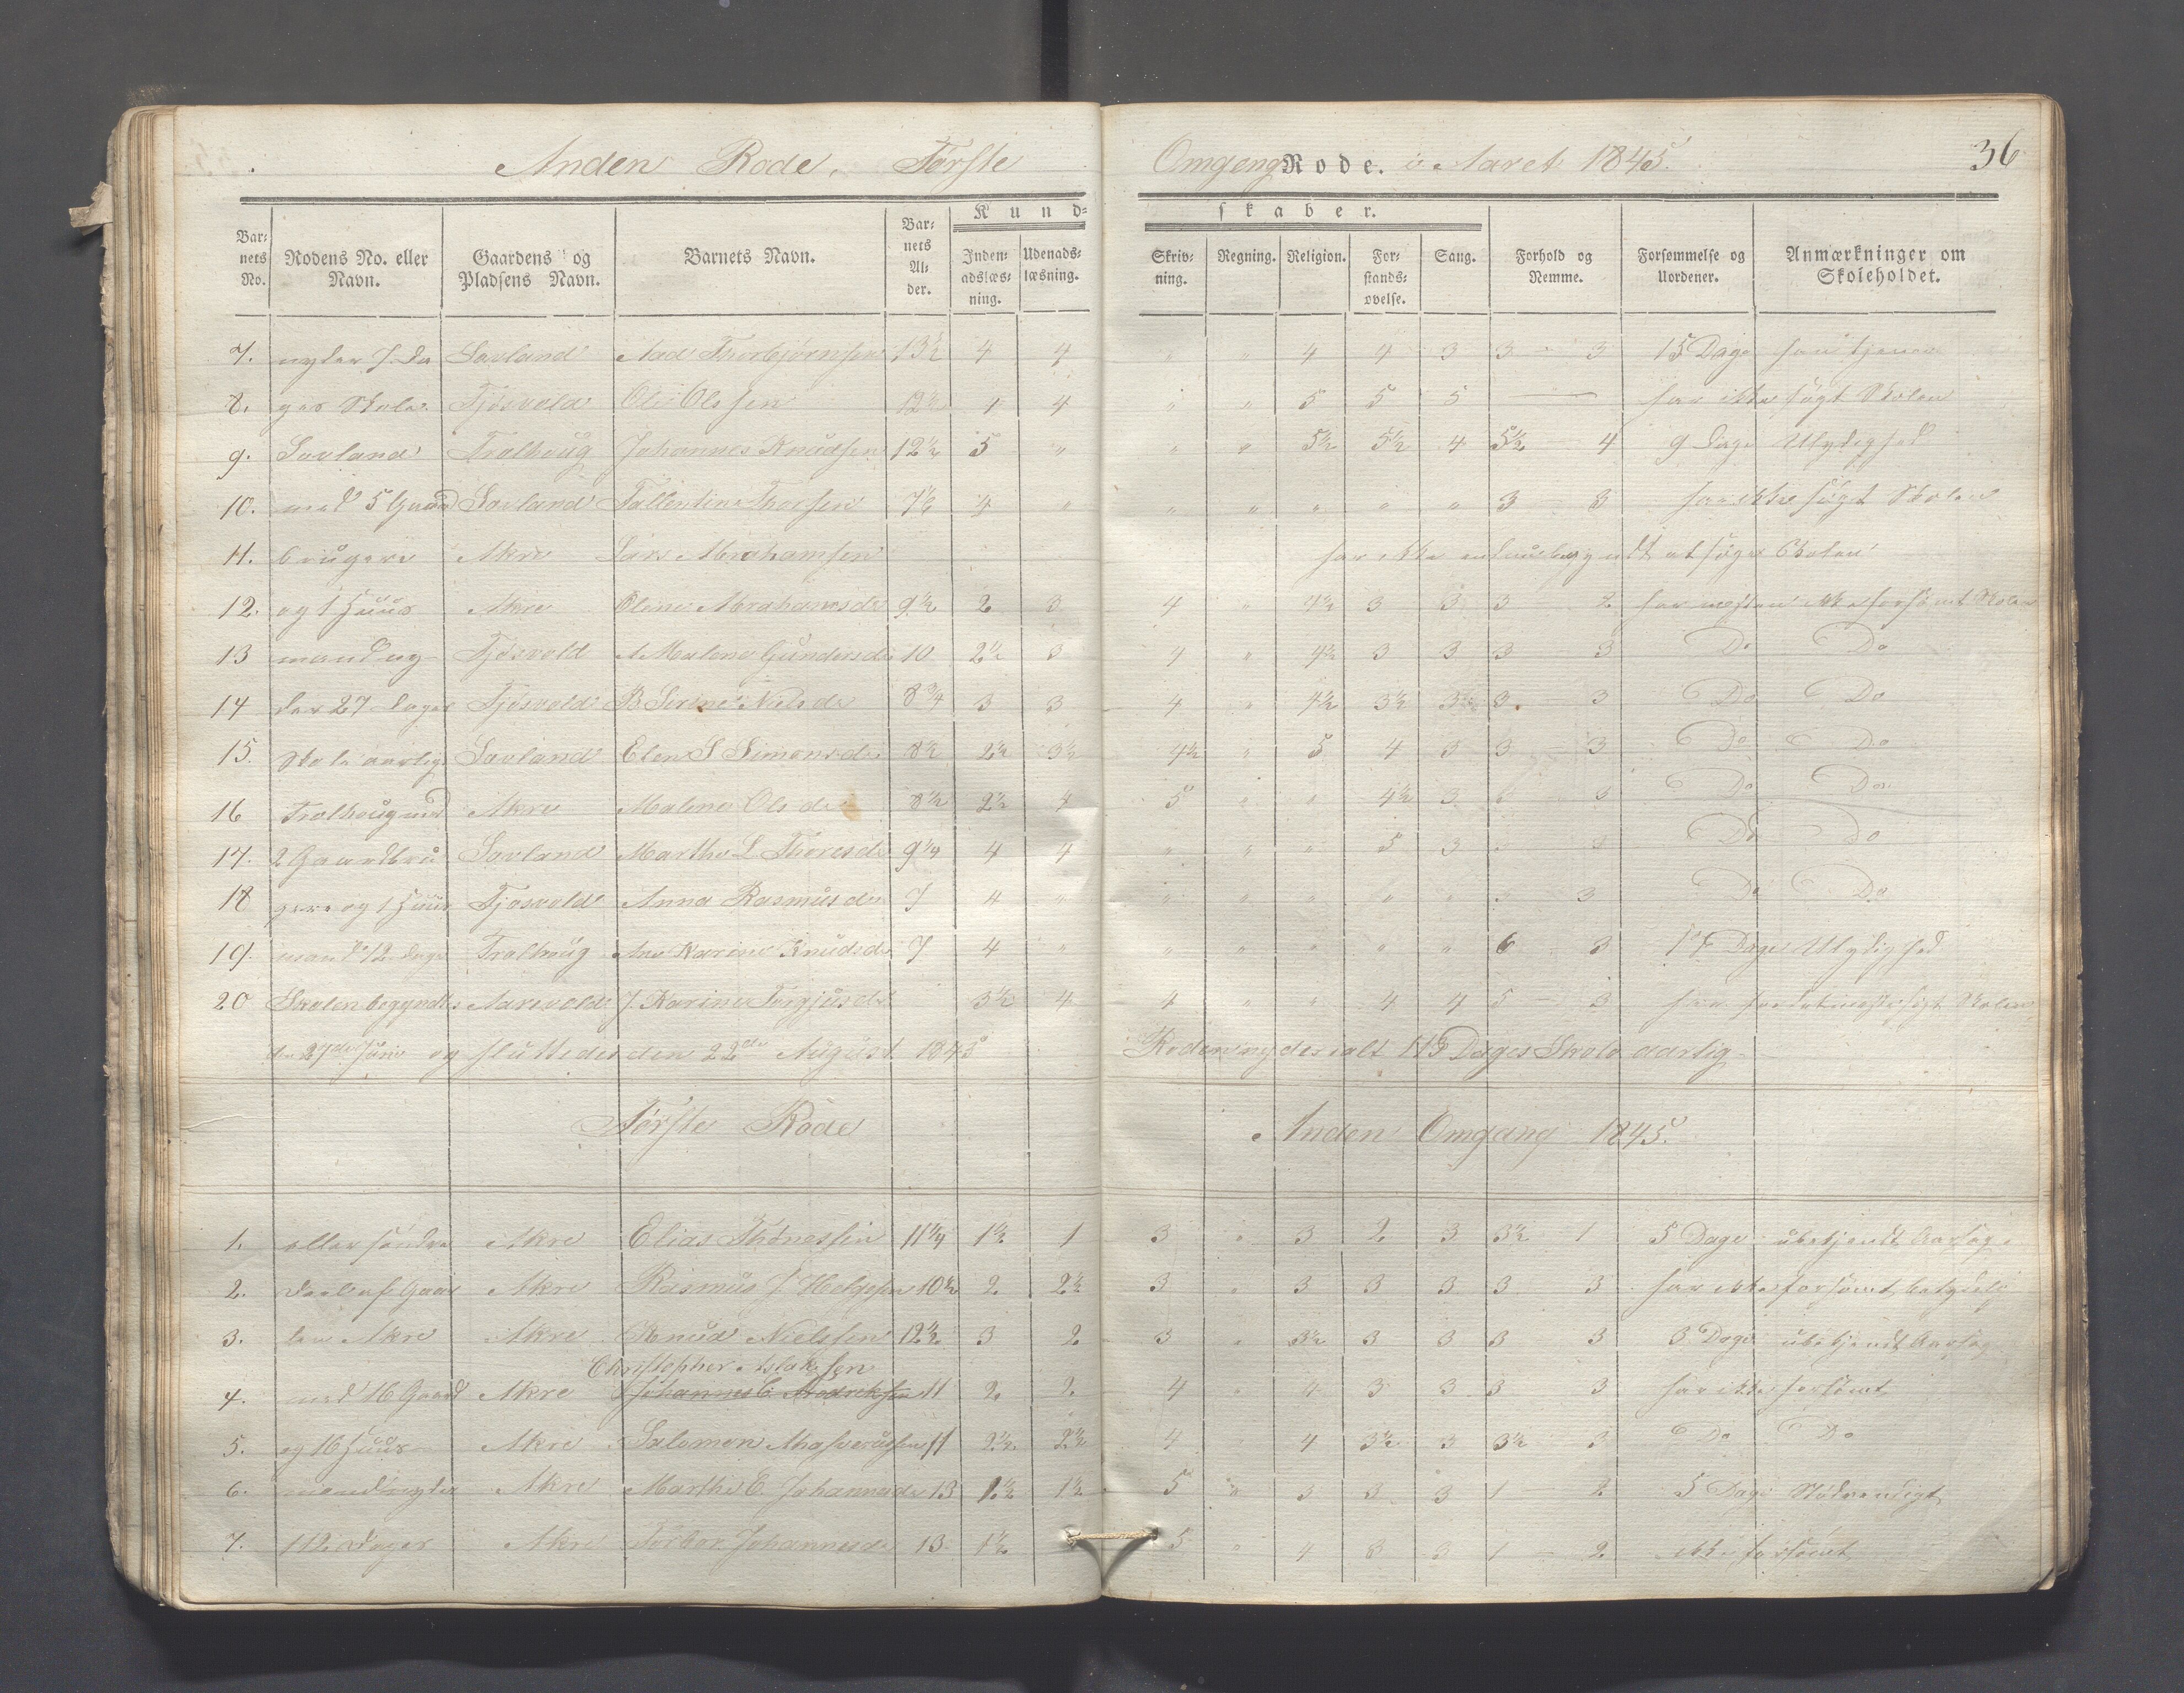 Anden Rode, Første Omgang Rode. i Aaret 1845. 36
Kundskaber.
Barnets No. Rodens No. eller Navn. Gaardens og Pladsens Navn. Barnets Navn. Barnets Alder. Indenadslæsning. Udenadslæsning. Skrivning. Regning. Religion. Forstandsøvelse. Sang. Forhold og Nemme. Forsømmelse og Uordener. Anmærkninger om Skoleholdet.
7. nyder 7 Da Savland Aad Thorbjørnsen 13½ 4 4 " " 4 4 3 3 - 3 15 Dage han tjener
8. ges Skole. Tjøsvold Ole Olsen 12½ 4 4 " " 5 5 5 — har ikke søgt Skolen
9. Savland Tralhoug Johannes Knudsen 12½ 5 " " " 5½ 5½ 4 5½ - 4 9 Dage Ulydighed
10. med 5 Gaard Savland Tallentin Thorsen 7½ 4 " " " " " " 3 - 3 har ikke søgt Skolen
11. brugere Akre Lars Abrahamsen har ikke endnu begyndt at søge Skolen
12. og 1 Huus Akre Oline Abrahamsdr 9½ 2 3 4 " 4½ 3 3 3 - 2 har næsten ikke forsømt Skolen
13 mand ny Tjøsvold A Malene Gundersdr 10 2½ 3 4 " 4½ 3 3 3 - 3 Do Do
14 der 27 Dages Tjøsvold B Serine Nielsdr 8¾ 3 3 4 " 4½ 3½ 3½ 3 - 3 Do Do
15. Skole aarlig Savland Elen S Simonsdr 8½ 2½ 3½ 4½ " 5 4 3 3 - 3 Do Do
16 Tralhoug med Akre Malene Olsdr 8½ 2½ 4 5 " " 4½ 3 - 3 Do Do
17. 2 Gaardbru Savland Marthe L Thoresdr 9¼ 4 4 " " " 5 3 Do Do
18 gere og 1 Huus Tjøsvold Anna Rasmusdr 7 4 " " " " " " - 3 Do Do
19. mand 12 Dage Tralhoug Ane Karine Knudsdr 7 4 " " " " " " 6 3 17 Dage Ulydighed
20 Skolen begyndtes Aarevold J. Karine Torgjusdr 3½ 4 4 " " 4 4 5 - 3 har søgt Skolen
den 27de Juni og sluttedes den 22de August 1845 Roden nyder ialt 115 Dages Skole aarlig
Første Rode Anden Omgang 1845.
1. eller søndre Akre Elias Thønessen 11¼ 1½ 1 3 " 3 2 3 3½ - 1 5 Dage ubekjendt Aarsag
2. Deel af Gaar Akre Rasmus J Helgesen 10½ 2 2½ 3 " 3 3 3 3 - 3 har ikke forsømt betydelig
3. den Akre Akre Knud Nielssen 12½ 3 2 3 " 3½ 3 3 3 - 3 3 Dage ubekjendt Aarsag
Christopher Aslaksen
4. med 16 Gaard Akre Johannes C. Andreksen 11 2 2 4 " 4 3 3 3 - 3 har ikke forsømt
5. og 16 Huus Akre Salomon Asverussen 11 2½ 2½ 4 " 4 3½ 3 3½ - 3 Do Do
6. mænd nyder Akre Marthe E. Johannesdr 13 1½ 1½ 5 " 3 3 3 1 - 2 5 Dage Nødvendigt
7. 112 Dages Akre Johannesdr 13 1½ 5 " 4 3 3 1 - 2 ikke forsømt